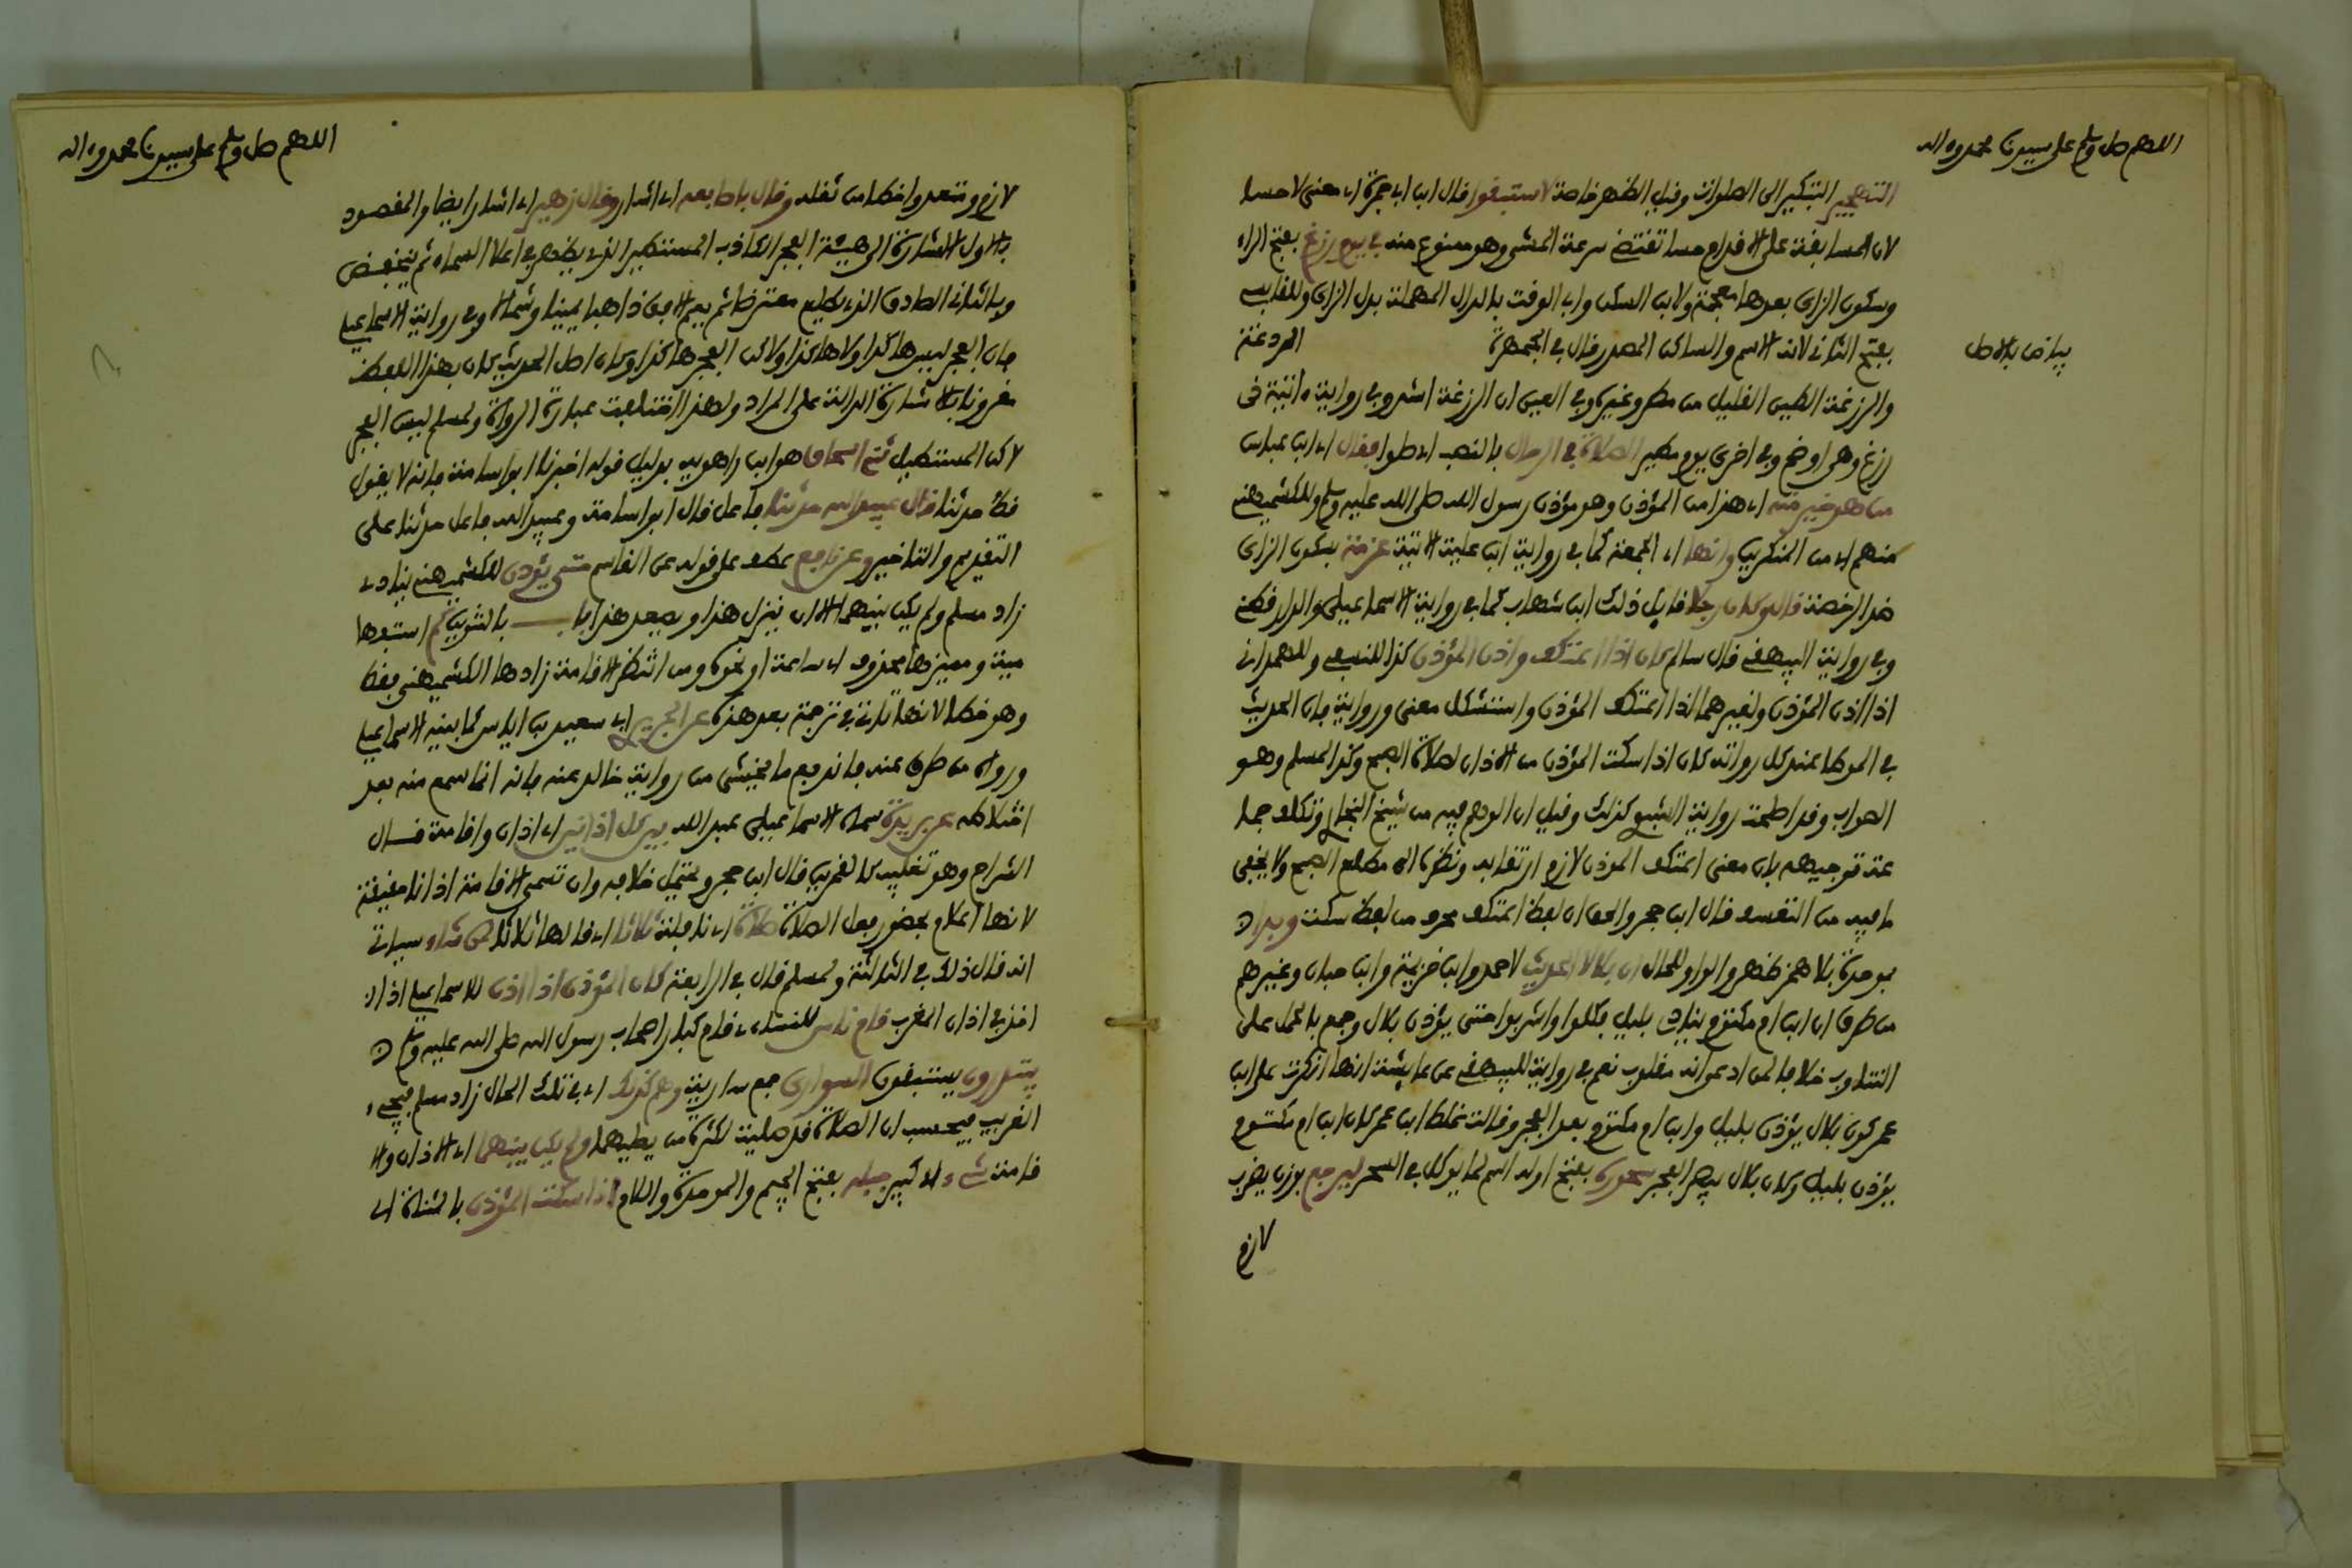 اللهم صل وسلم على سيدنا محمد واله
التهجير التبكير الى الصلوات وقيل الظهر خاصة لاستبقوا قال ابن ابي جمرة اي معنى لا حسا
لان المسابقة على الاقدام حسا تقتضي سرعة المشي وهو ممنوع منه في يوم رزغ بفتح الراء
وسكون الزاي بعدها معجمة ولابن السكن وابي الوقت بالدال المهملة بدل الزاي وللقابسي
بفتح الثاني لانه الاسم والساكن المصدر قال في الجمهرة الردغة
بياض بالاصل
والرزغة الطين القليل من مطر وغيره وفي العين ان الرزغة اشد وفي رواية اتية في
رزغ وهي اوضح وفي اخرى يوم مطير الصلاة في الرحال بالنصب اي صلوا فقال اي ابن عباس
من هو خير منه اي هذا من المؤذن وهو مؤذن رسول الله صلى الله عليه وسلم وللكشميهني
منهم اي من المنكرين وانها اي الجمعة كما في رواية ابن علية الاتية عزمة بسكون الزاي
ضد الرخصة قال وكان رجلا قايل ذلك ابن شهاب كما في رواية الاسماعيلي والدارقطني
وفي رواية البيهقي قال سالم كان اذا اعتكف واذن المؤذن كذا للنسفي وللهمداني
اذا اذن المؤذن ولغيرهما اذا اعتكف المؤذن واستشكل معنى ورواية بان الحديث
في الموطا عند كل رواته كان اذا سكت المؤذن من الاذان لصلاة الصبح وكذا لمسلم وهو
الصواب وقد اصلحت رواية الشيخ كذلك وقيل ان الوهم فيه من شيخ البخاري وتكلف جما
عة توجيهه بان معنى اعتكف المؤذن لازم ارتقابه ونظره الى مطلع الصبح ولا يخفى
ما فيه من التعسف قال ابن حجر والحق ان لفظ اعتكف محرف من لفظ سكت وبدا
بموحدة بلا همز ظهر والواو للحال ان بلالا الحديث لاحمد وابن خزيمة وابن حبان وغيرهم
من طرق ان ابن ام مكتوم ينادي بليل فكلوا واشربوا حتى يؤذن بلال وجمع بالحمل على
التناوب خلافا لمن ادعى انه مقلوب نعم في رواية للبيهقي عن عايشة انها انكرت على ابن
عمر كون بلال يؤذن بليل وابن ام مكتوم بعد الفجر وقالت غلط ابن عمر كان ابن ام مكتوم
يؤذن بليل وكان بلال يبصر الفجر سحوره بفتح اوله اسم لما يوكل في السحر ليرجع بوزن يضرب
لازم
اللهم صل وسلم على سيدنا محمد واله
لازم ومتعد واخطا من ثقله وقال باصابعه اي اشار وقال زهير اي اشار ايضا والمقصود
بالاول الاشارة الى هيئة الفجر الكاذب المستطير الذي يظهر في اعلا السماء ثم ينخفض
وبالثاني الصادق الذي يطلع معترضا ثم يعم الافق ذاهبا يمينا وشمالا وفي رواية الاسماعيلي
فان الفجر ليس هاكذا ولا هاكذا ولاكن الفجر هاكذا وكان اصل الحديث كان بهذا اللفظ
مقرونا بالاشارة الدالة على المراد ولهذا اختلفت عبارة الرواة ولمسلم ليس الفجر
لاكن المستطيل اسحاق هو ابن راهويه بدليل قوله اخبرنا ابو اسامة فانه لا يقول
قط حدثنا قال عبيد الله حدثنا فاعل قال ابو اسامة وعبيد الله فاعل حدثنا على
التقديم والتاخير وعن نافع عطف على قوله عن القاسم حتى يؤذن للكشميهني ينادي
زاد مسلم ولم يكن بينهما الا ان ينزل هذا ويصعد هذا بالتنوين استفها
مية ومميزها محذوف اي ساعة او نحوه ومن انتظر الاقامة زادها الكشميهني فقط
وهو خطا لانها تاتي في ترجمة بعد هذه عن الجريري اي سعيد بن اياس كما بينه الاسماعيلي
ورواه من طرق عنه فاندفع ما يخشى من رواية خالد عنه فانه انما سمع منه بعد
اختلاطه عن بريدة سماه الاسماعيلي عبد الله بين كل اذانين اي اذان واقامة قال
الشراح وهو تغليب كالقمرين قال ابن حجر ويحتمل خلافه وان تسمى الاقامة اذانا حقيقة
لانها اعلام بحضور فعل الصلاة صلاة اي نافلة ثلاثا اي قالها ثلاثا لمن شاء سياتي
انه قال ذلك في الثالثة ولمسلم قال في الرابعة كان المؤذن اذا اذن للاسماعيلي اذا
اخذ في اذان المغرب قام ناس للنساءي قام كبار اصحاب رسول الله صلى الله عليه وسلم
يبتدرون يستبقون السواري جمع سارية وهم كذلك اي في تلك الحال زاد مسلم فيجيء
الغريب فيحسب ان الصلاة قد صليت لكثرة من يصليهما ولم يكن بينهما اي الاذان والا
قامة شيء اي كبير جبلة بفتح الجيم والموحدة واللام اذا سكت المؤذن بالمثناة اي